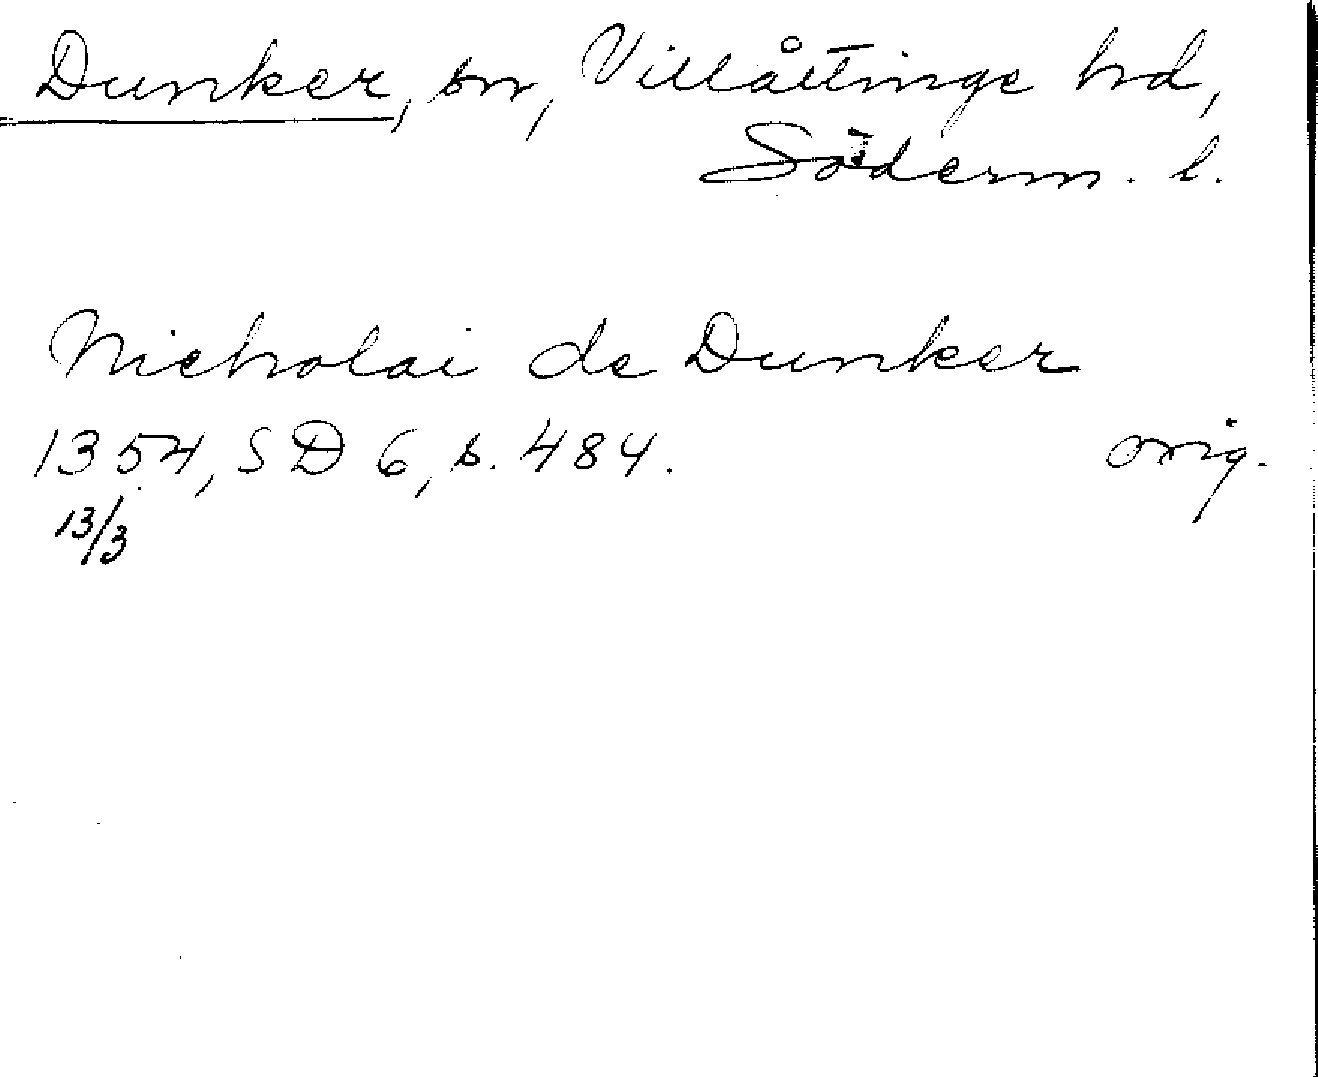 Dunker, sn, Villåttinge hd,
Söderm. l.
Nicholai de Dunker
1354, SD 6, s. 484. orig.
13/3